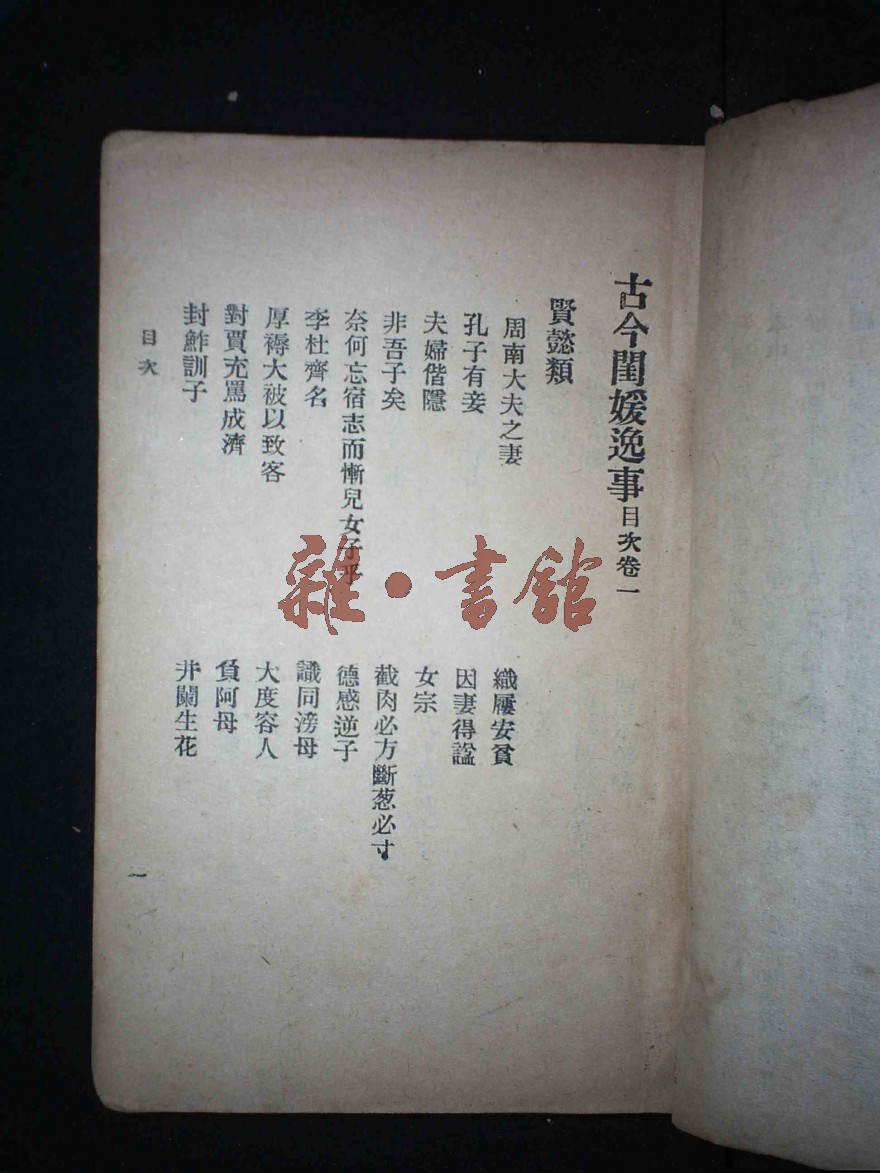 古今閨媛逸事目次卷一
賢懿類
周南大夫之妻
織屨安貧
孔子有妾
因妻得諡
夫婦偕隱
女宗
非吾子矣
截肉必方斷葱必寸
奈何忘宿志而慚兒女子乎
德感逆子
李杜齊名
識同滂母
厚褥大被以致客
大度容人
對賈充罵成濟
負阿母
封鮓訓子
井闌生花
目次
一
雜·書館